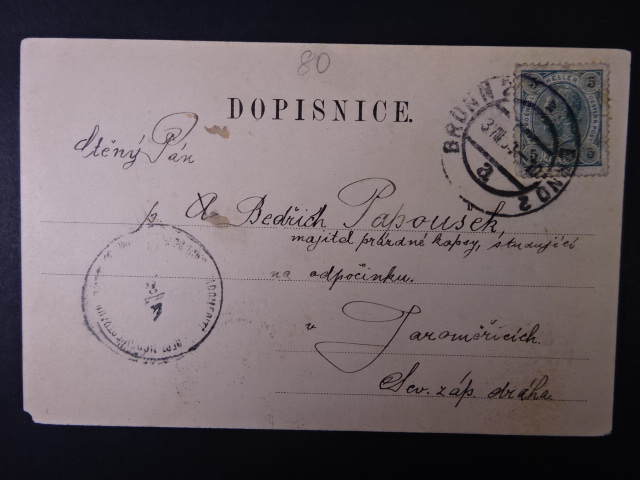 80
DOPISNICE.
BRÜNN 2 BRNO 2
a
HELLER
5 5
Ctěný Pán
p. A. Bedřich Papoušek,
majitel prázdné kapsy, studující
na odpočinku.
v
Jaroměřicích.
Sev. záp. dráha.